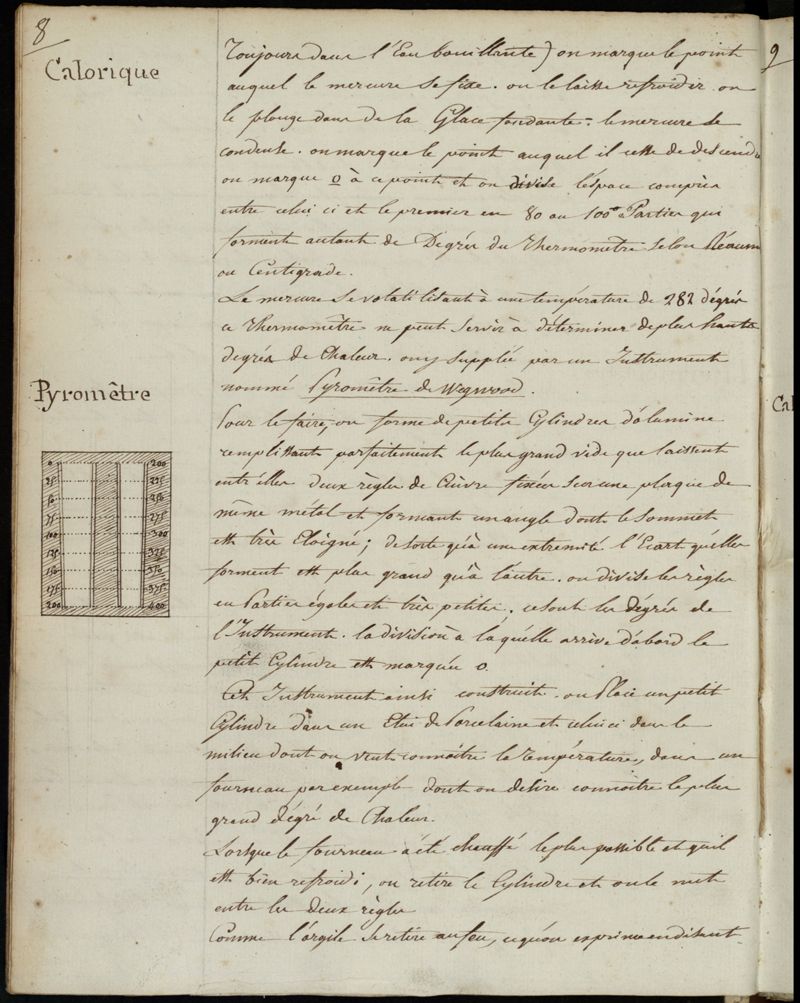 8
Calorique
Toujours dans l'Eau bouillante) on marque le point
auquel le mercure se fixe. on le laisse refroidir on
le plonge dans de la Glace fondante = le mercure se
condense. on marque le point auquel il cesse de descendre
on marque 0 à ce point et on divise l'éspace compris
entre celui ci et le premier en 80 ou 100 Parties qui
forment autant de Dégrés du Thermomêtre selon Réaum
ou Centigrade.
Le mercure se volatilisant à une température de 282 dégrés
ce Thermomêtre ne peut servir à déterminer de plus hauts
degrés de Chaleur. on y supplée par un Instrument
nommé Pyromêtre de Wegwood.
Pyromêtre
Pour le faire, on forme de petits Cylindres d'alumine
remplissant parfaitement le plus grand vide que laissent
entr'elles deux règles de Cuivre fixées sur une plaque de
même métal et formant un angle dont le sommet
est très Eloigné; de sorte qu'à une extremité l'Ecart qu'elles
forment est plus grand qu'à l'autre. on divise les règles
en Parties égales et très petites. ce sont les dégrés de
l'Instrument. la division à laquélle arrive d'abord le
petit Cylindre est marquée 0.
Cet Instrument ainsi construit. on Place un petit
Cylindre dans un Etui de Porcelaine et celui ci dans le
milieu dont on veut connoitre la température, dans un
fourneau par exemple dont on desire connoitre le plus
grand dégré de Chaleur.
Lorsque le fourneau a été chauffé le plus possible et qu'il
est bien refroidi, on retire le Cylindre et on le met
entre les deux règles
Comme l'argile se retire au feu, ce qu'on exprime en disant
0 200
25 225
50 250
75 275
100 300
125 325
150 350
175 375
200 400
9
Cal